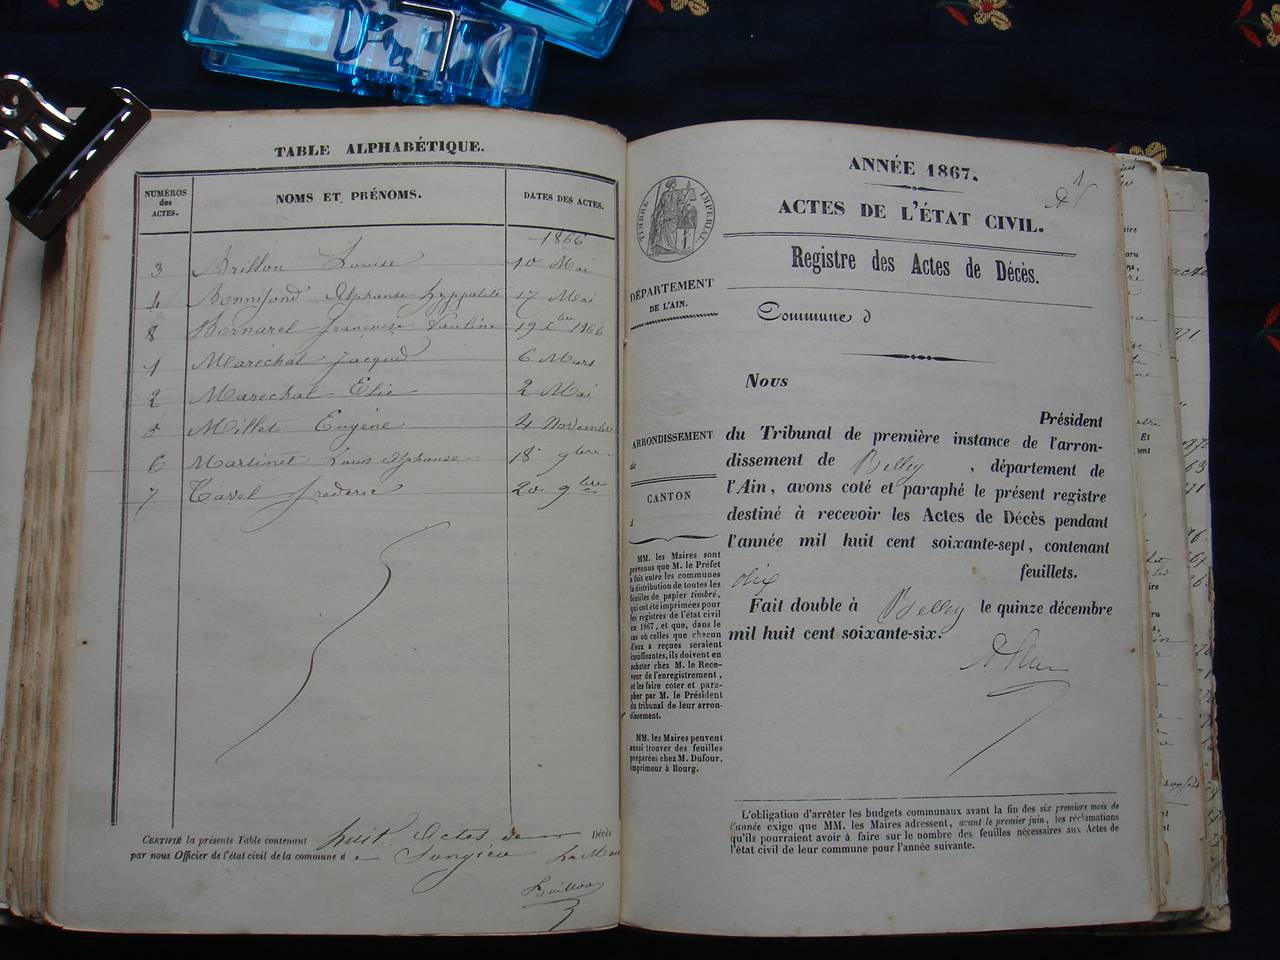 TABLE ALPHABÉTIQUE.
NUMÉROS des ACTES.
NOMS ET PRÉNOMS.
DATES DES ACTES.
1866
3 Brillon Louise 10 Mai
4 Bonnifond Alphonse Hyppolite 17 Mai
8 Bornarel Françoise Pauline 19 Xbre 1866
1 Maréchal Jacques 6 Mars
2 Maréchal Elie 2 Mai
5 Millet Eugène 4 Novembre
6 Martinet Louis Alphonse 18 9bre
7 Tavel Frederic 20 9bre
CERTIFIÉ la présente Table contenant huit Actes de Décès
par nous Officier de l'état civil de la commune de Songieu Le Maire
ANNÉE 1867.
ACTES DE L'ÉTAT CIVIL.
TIMBRE IMPÉRIAL
Registre des Actes de Décès.
DÉPARTEMENT
DE L'AIN.
Commune d
ARRONDISSEMENT
de
CANTON
d
MM. les Maires sont
prévenus que M. le Préfet
a fait entre les communes
la distribution de toutes les
feuilles de papier timbré,
qui ont été imprimées pour
les registres de l'état civil
en 1867, et que, dans le
cas où celles que chacun
d'eux a reçues seraient
insuffisantes, ils doivent en
acheter chez M. le Rece-
veur de l'enregistrement,
et les faire coter et para-
pher par M. le Président
du tribunal de leur arron-
dissement.
MM. les Maires peuvent
aussi trouver des feuilles
préparées chez M. Dufour,
imprimeur à Bourg.
Nous
Président
du Tribunal de première instance de l'arron-
dissement de Belley, département de
l'Ain, avons coté et paraphé le présent registre
destiné à recevoir les Actes de Décès pendant
l'année mil huit cent soixante-sept, contenant
dix feuillets.
Fait double à Belley le quinze décembre
mil huit cent soixante-six.
L'obligation d'arrêter les budgets communaux avant la fin des six premiers mois de
l'année exige que MM. les Maires adressent, avant le premier juin, les réclamations
qu'ils pourraient avoir à faire sur le nombre des feuilles nécessaires aux Actes de
l'état civil de leur commune pour l'année suivante.